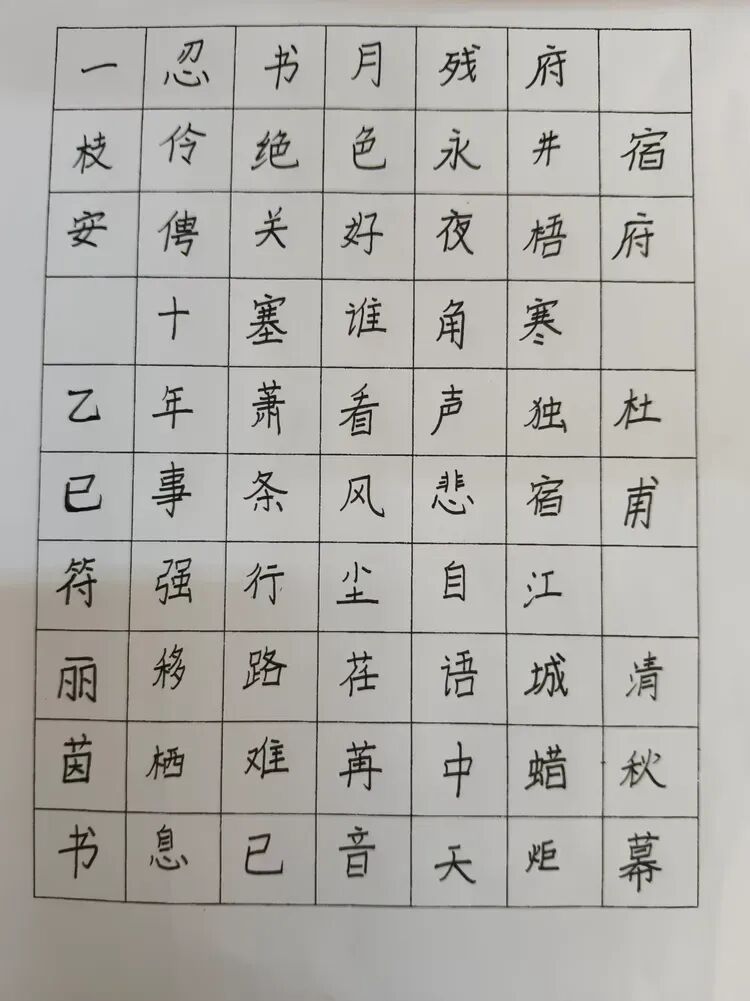 宿府 杜甫 清秋幕
府井梧寒独宿江城蜡炬
残永夜角声悲自语中天
月色好谁看风尘荏苒音
书绝关塞萧条行路难已
忍伶俜十年事强移栖息
一枝安 乙巳符丽茵书